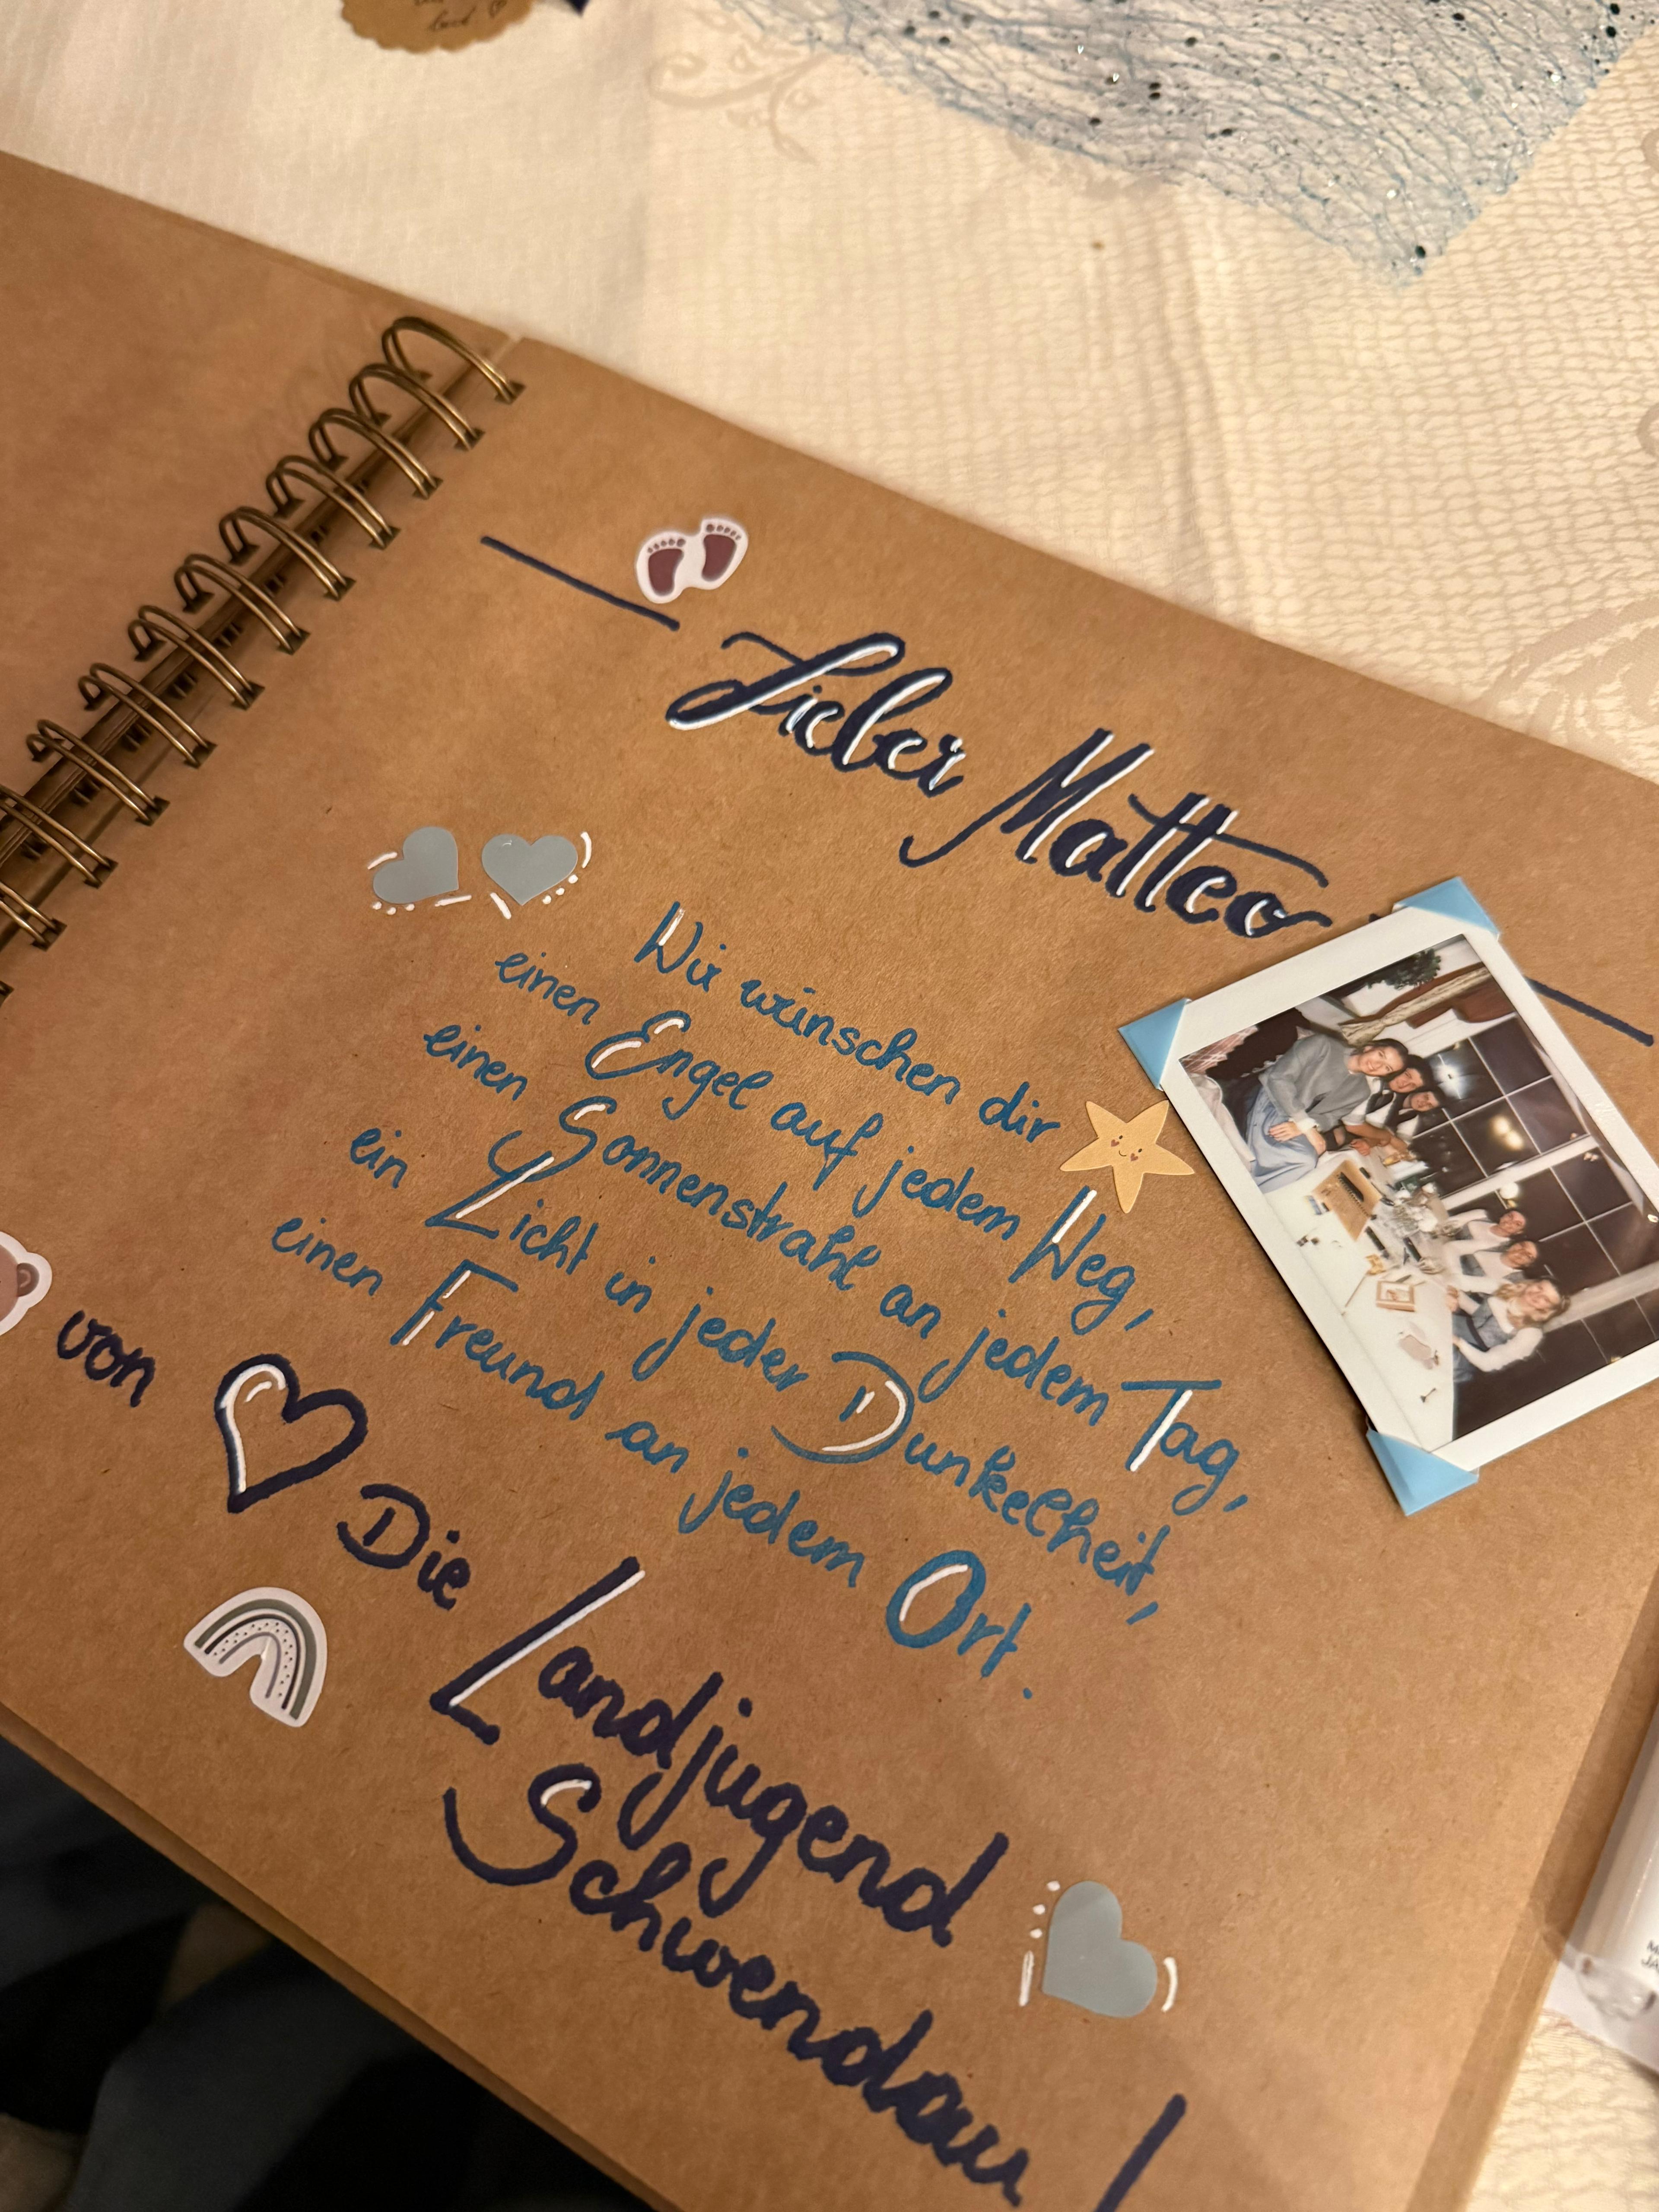 Lieber Matteo
Wir wünschen dir
einen Engel auf jedem Weg,
einen Sonnenstrahl an jedem Tag,
ein Licht in jeder Dunkelheit,
einen Freund an jedem Ort.
von
Die Landjugend
Schwendau!